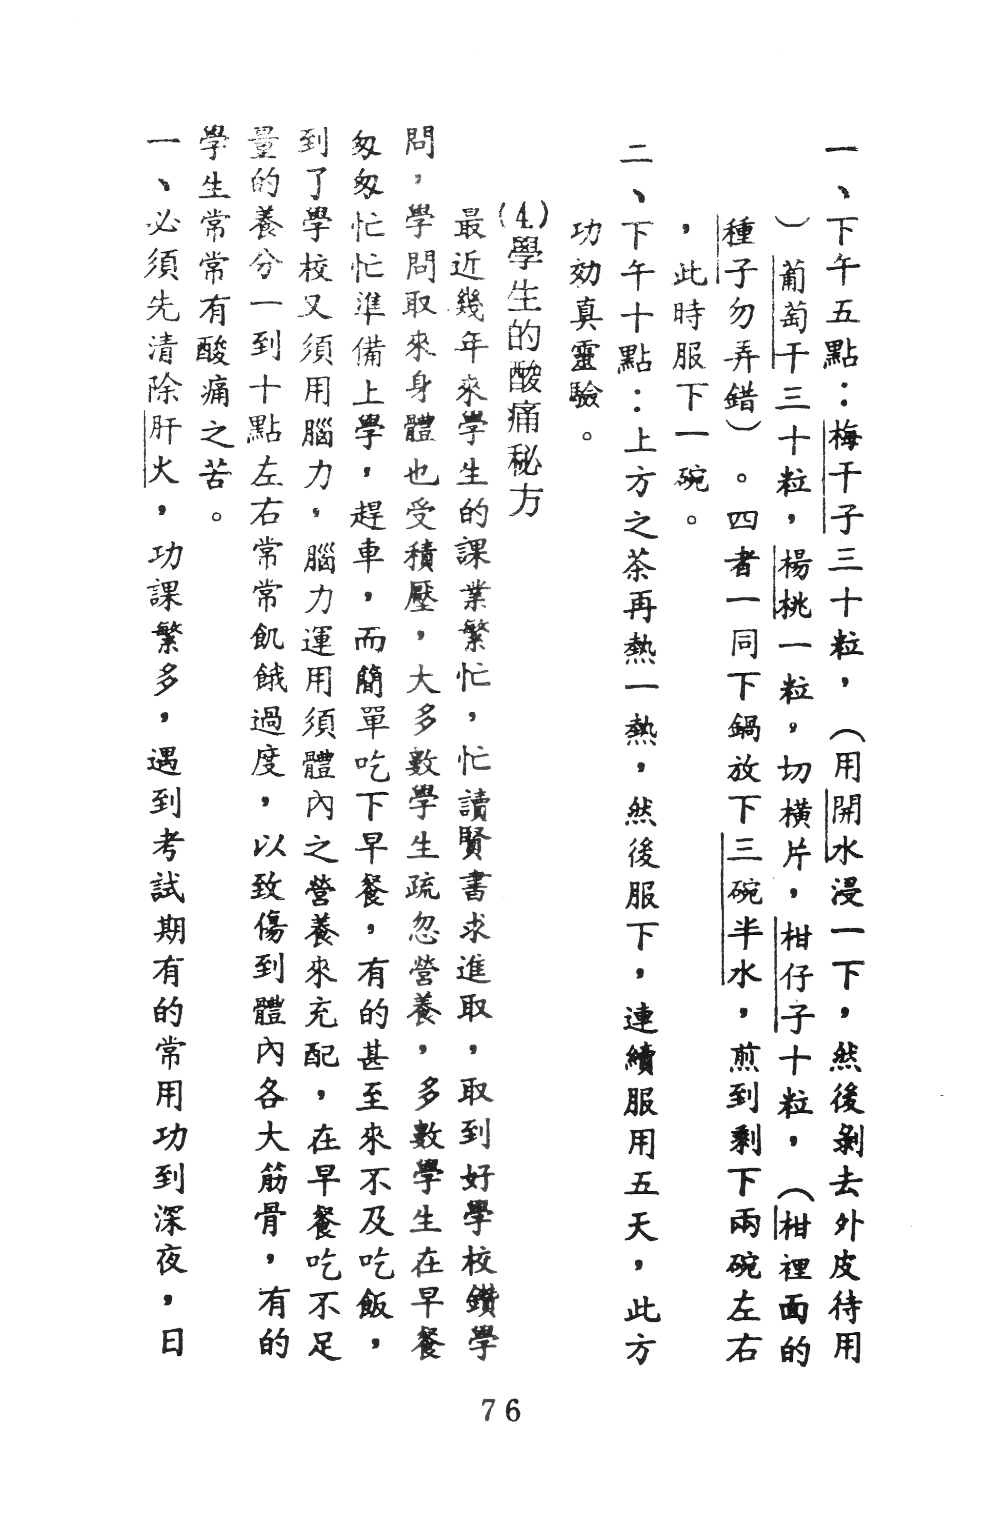 一、下午五點：梅干子三十粒，（用開水浸一下，然後剝去外皮待用
）葡萄干三十粒，楊桃一粒。切橫片，柑仔子十粒，（柑裡面的
種子勿弄錯）。四者一同下鍋放下三碗半水，煎到剩下兩碗左右
，此時服下一碗。
二、下午十點：上方之茶再熱一熱，然後服下，連續服用五天，此方
功効真靈驗。
(4)學生的酸痛秘方
最近幾年來學生的課業繁忙，忙讀賢書求進取，取到好學校鑽學
問，學問取來身體也受積壓，大多數學生疏忽營養，多數學生在早餐
匆匆忙忙準備上學，趕車，而簡單吃下早餐，有的甚至來不及吃飯，
到了學校又須用腦力，腦力運用須體內之營養來充配，在早餐吃不足
量的養分一到十點左右常常飢餓過度，以致傷到體內各大筋骨，有的
學生常常有酸痛之苦。
一、必須先清除肝火，功課繁多，遇到考試期有的常用功到深夜，日
76